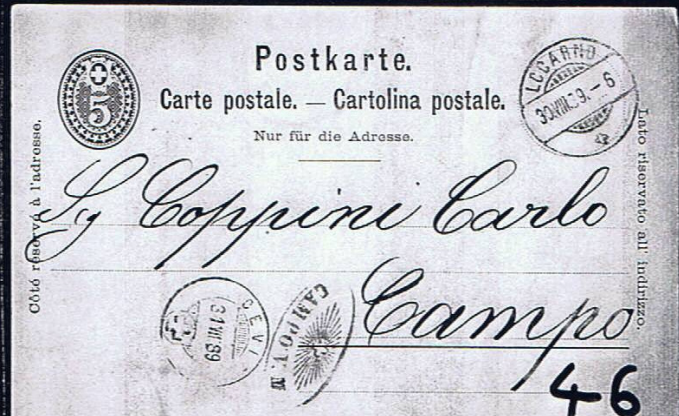 Postkarte.
Carte postale. — Cartolina postale.
Nur für die Adresse.
5
LOCARNO
30.VIII.89.-6
Côté réservé à l'adresse.
Lato riservato all' indirizzo.
Sg Coppini Carlo
Campo
CEVI
31 VIII 89
CAMPO V. M
46